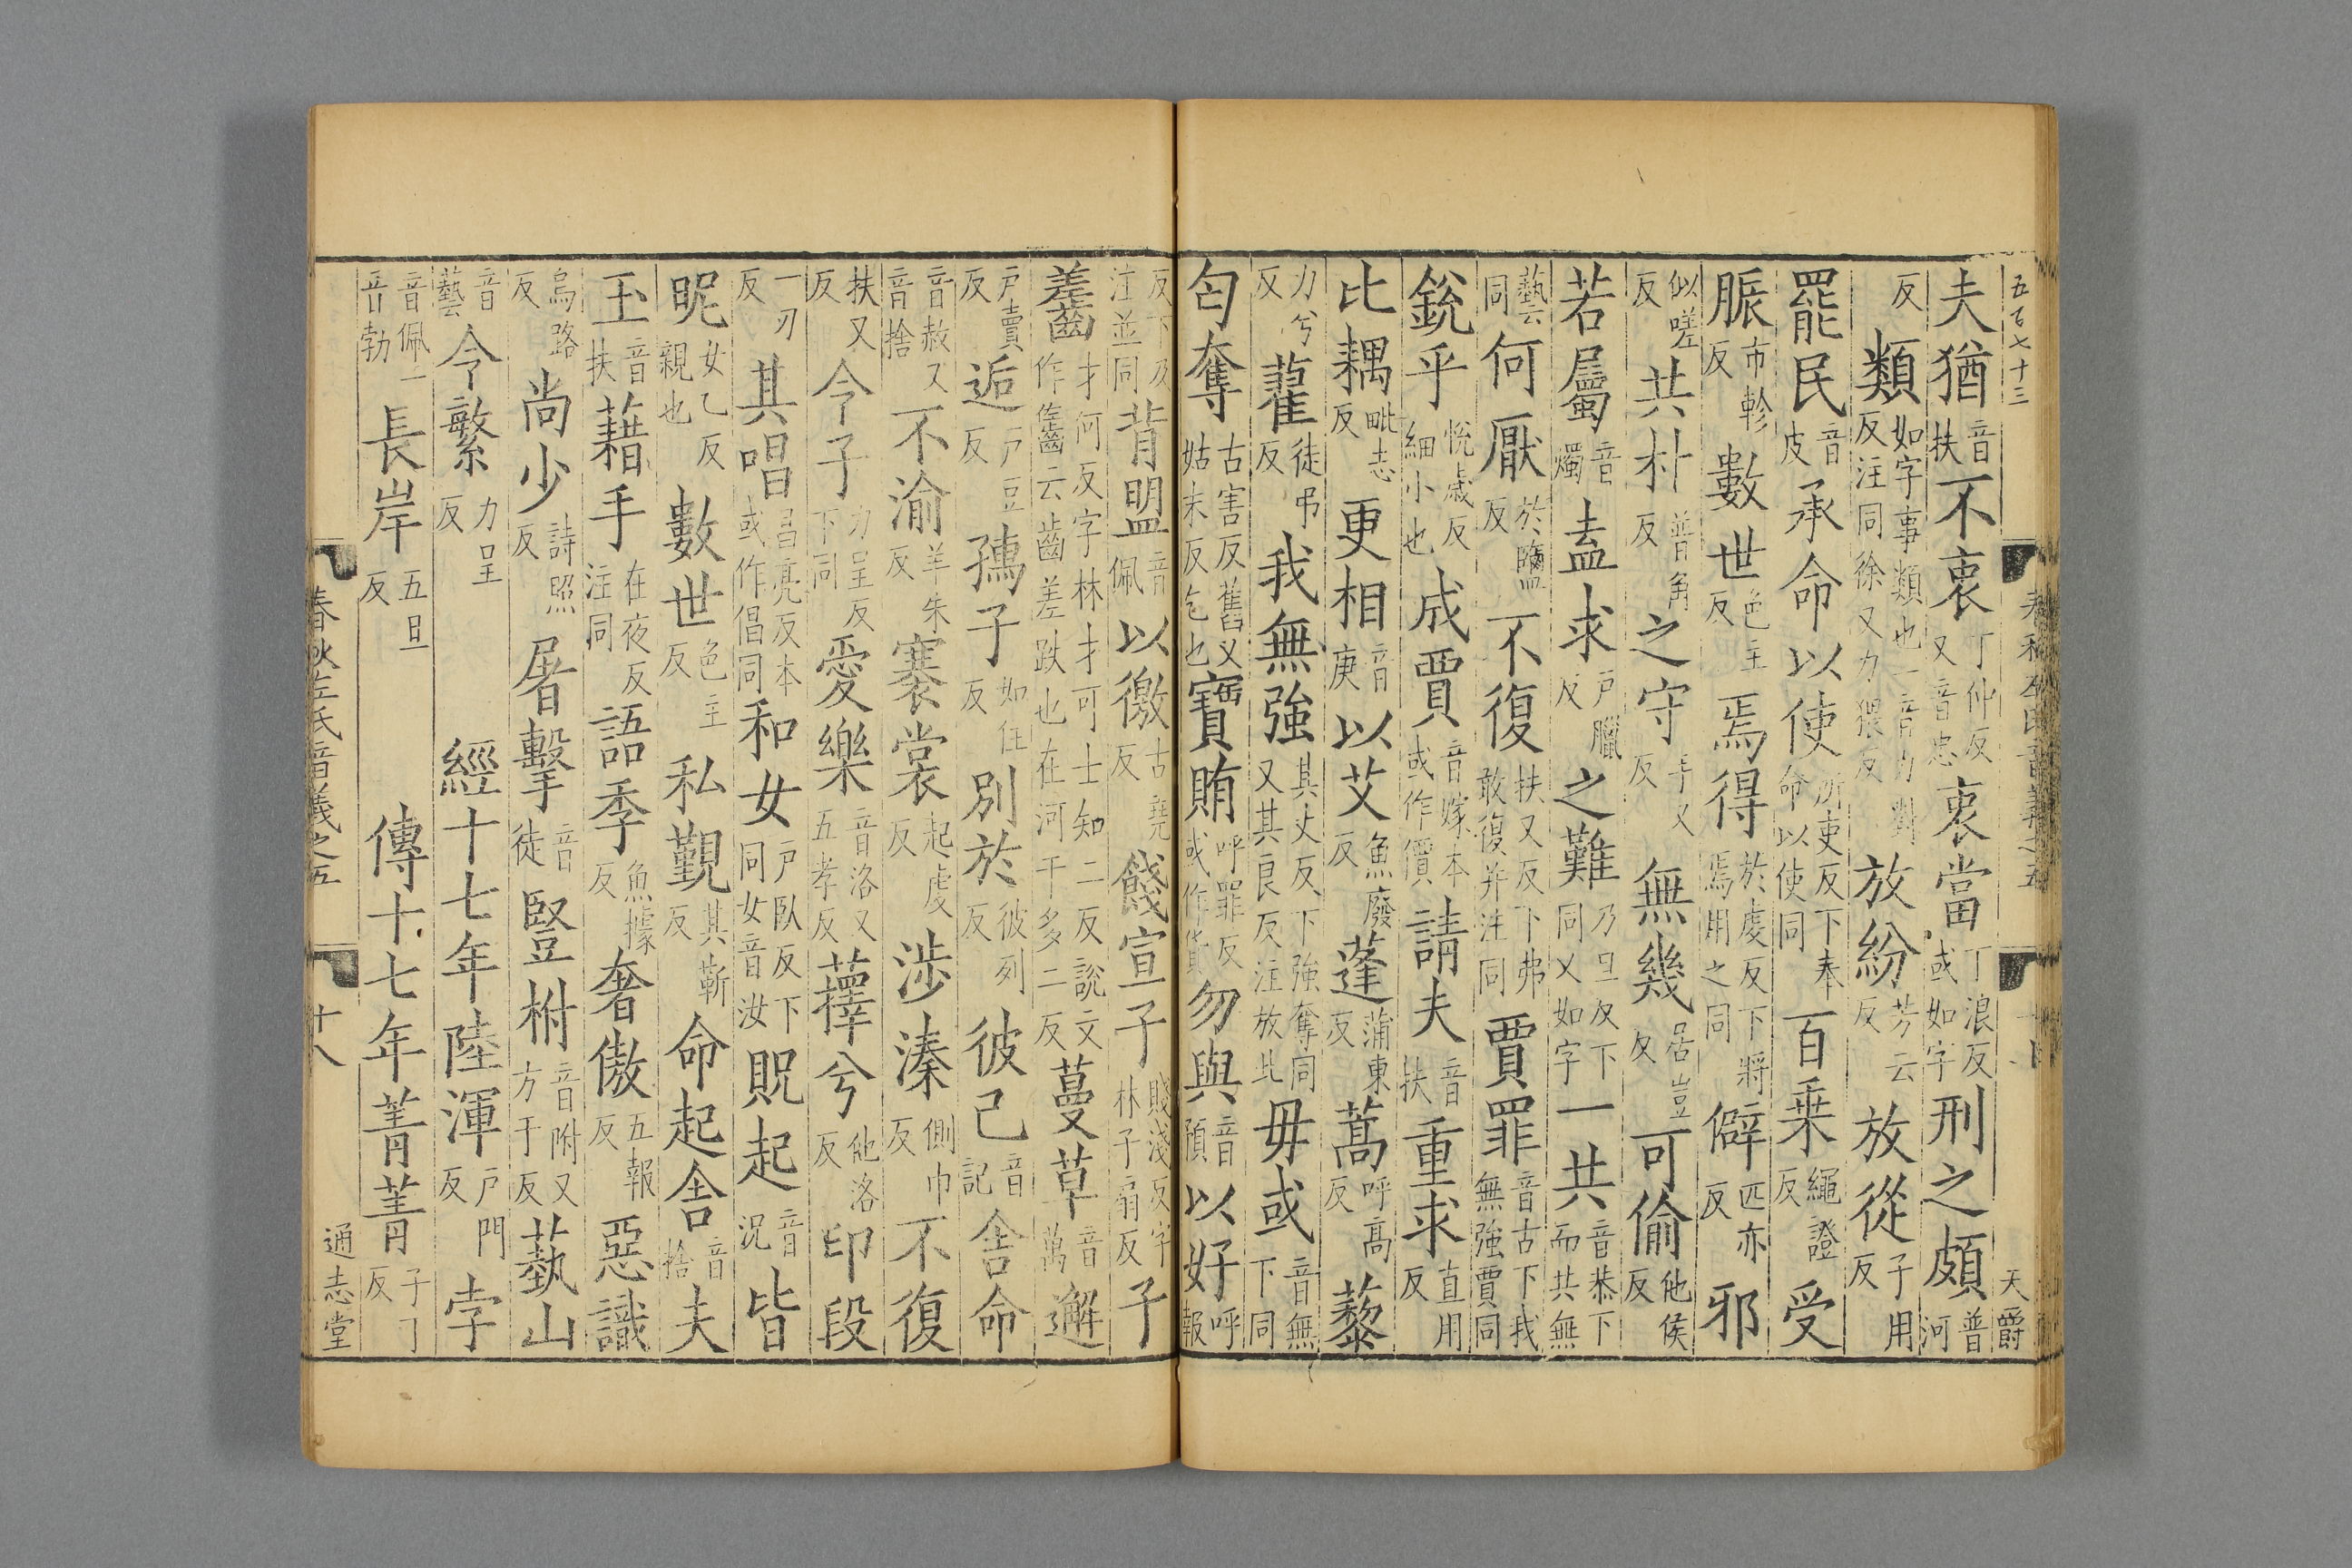 五百七十三 春秋左氏音義之五 天爵
夫猶音扶不衷丁仲反又音忠衷當丁浪反或如字刑之頗普河
反類如字事類也一音力對反注同徐又力猥反放紛芳云反放從子用反
罷民音皮承命以使所吏反下奉命以使同百乗繩證反受
脤市軫反數世色主反焉得於虔反下將焉用之同僻匹亦反邪
似嗟反共朴普角反之守手又反無幾居豈反可偷他侯反
若屬音燭盍求戶臘反之難乃旦反下同又如字一共音恭下而共無
藝同何厭於鹽反不復扶又反下弗敢復并注同賈罪音古下我無強賈同
銳乎悅歲反細小也成賈音嫁本或作價請夫音扶重求直用反
比耦毗志反更相音庚以艾魚廢反蓬蒲東反蒿呼高反藜
力兮反藋徒弔反我無強其丈反下強奪同又其良反注放此毋或音無下同
匄奪古害反舊又姑末反乞也寶賄呼罪反或作貨勿與音預以好呼報
反下及注並同背盟音佩以徼古堯反餞宣子賤淺反字林子扇反子
齹才何反字林才可士知二反說文作䶳云齒差跌也在河千多二反蔓草音萬邂
戶賣反逅戶豆反孺子如住反別於彼列反彼己音記舍命
音赦又音捨不渝羊朱反褰裳起虔反涉溱側巾反不復
扶又反今子力呈反下同愛樂音洛又五孝反蘀兮他洛反印段
一刃反其唱昌亮反本或作倡同和女戶臥反下同女音汝貺起音況皆
昵女乙反親也數世色主反私覲其靳反命起舍音捨夫
玉音扶藉手在夜反注同語季魚據反奢傲五報反惡識
烏路反尚少詩照反屠擊音徒豎柎音附又方于反蓺山
音藝令繁力呈反 經十七年陸渾戶門反孛
音佩一音勃長岸五旦反 傳十七年菁菁子丁反
春秋左氏音義之五 十八 通志堂